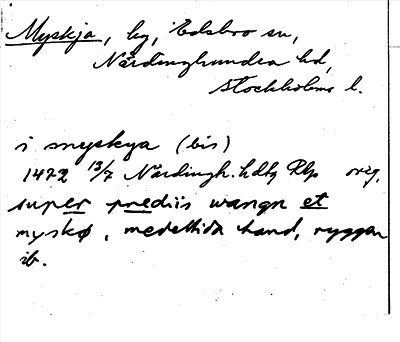 Myskja, by, Edsbro sn,
Närdinghundra hd,
Stockholms l.
i myskya (bis)
1472 13/7 Närdingh. hdtg Rlp orig.
super prediis wangn et
myskø, medeltida hand, ryggen
ib.